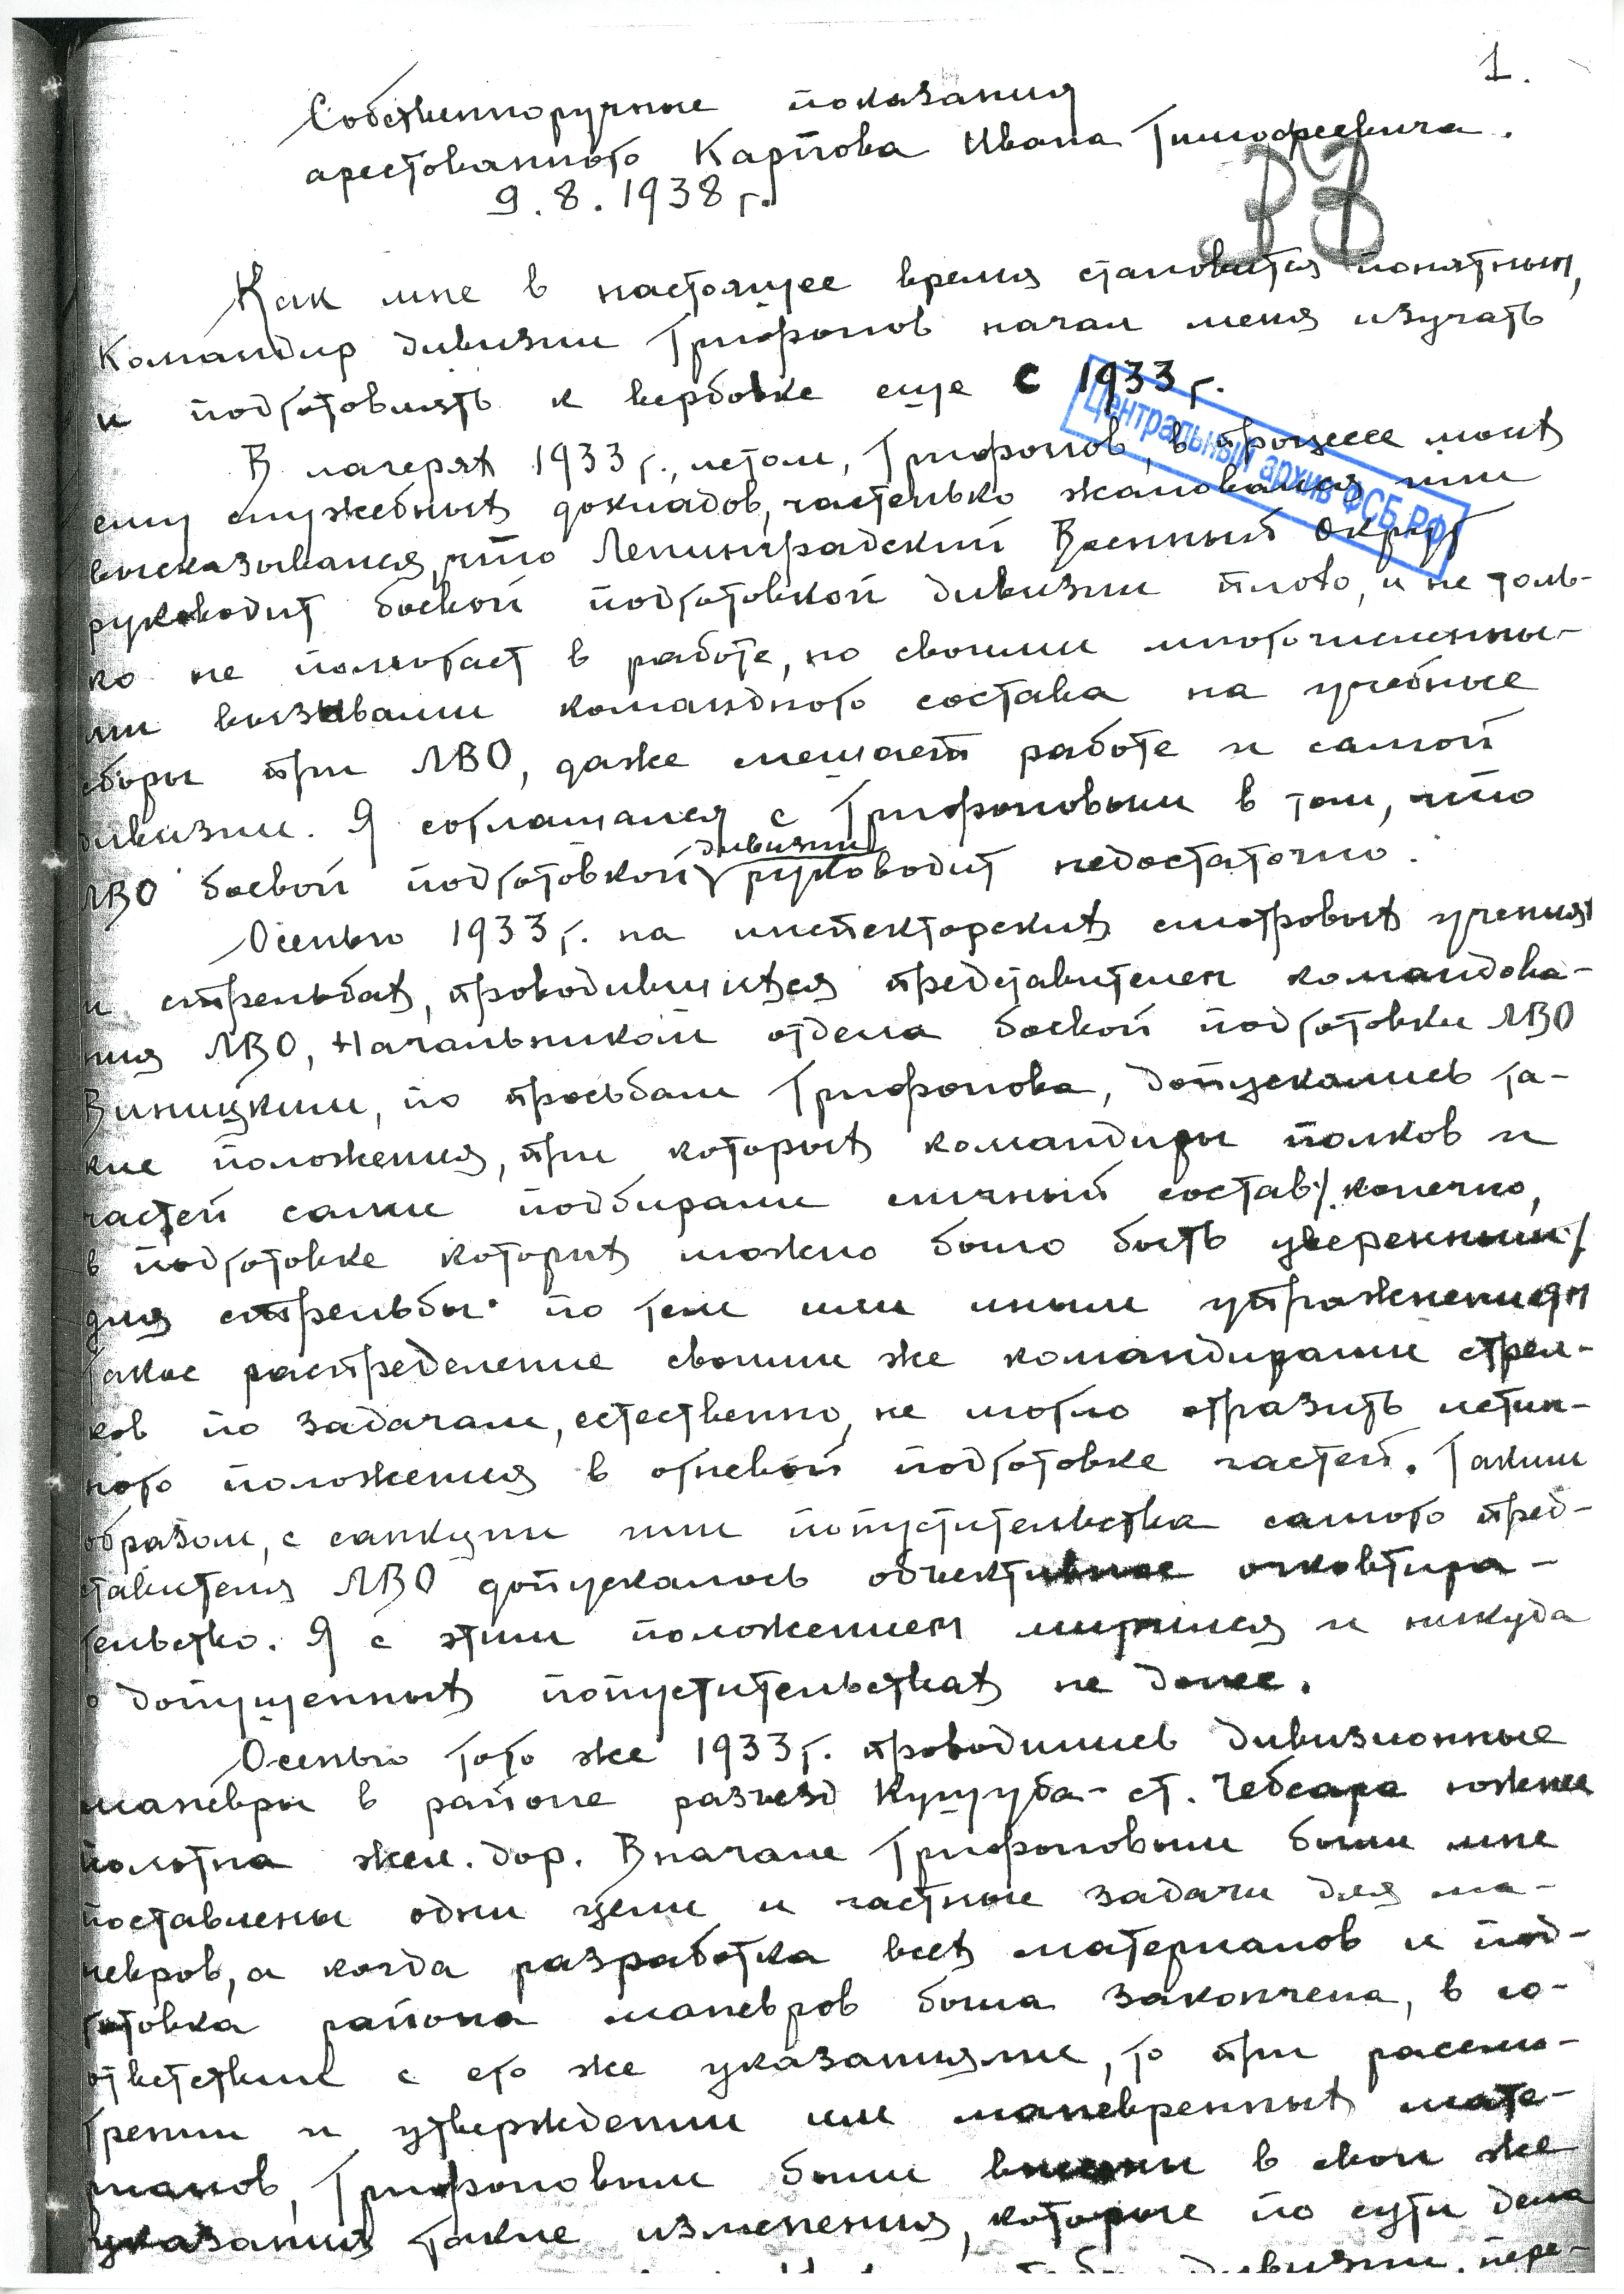 1.
Собственноручные показания
арестованного Карпова Ивана Тимофеевича.
9.8.1938 г.
Как мне в настоящее время становится понятным,
Командир дивизии Трифонов начал меня изучать
и подготовлять к вербовке еще с 1933 г.
Центральный архив ФСБ РФ
В лагерях 1933 г., летом, Трифонов, в процессе моих
ему служебных докладов, частенько жаловался или
высказывался, что Ленинградский Военный Округ
руководит боевой подготовкой дивизии плохо, и не толь-
ко не помогает в работе, но своими многочисленны-
ми вызывами командного состава на учебные
сборы при ЛВО, даже мешает работе и самой
дивизии. Я соглашался с Трифоновым в том, что
дивизии
ЛВО боевой подготовкой руководит недостаточно.
Осенью 1933 г. на инспекторских смотровых учениях
и стрельбах, проводившихся представителем командова-
ния ЛВО, Начальником отдела боевой подготовки ЛВО
Виницким, по просьбам Трифонова, допускались та-
кие положения, при которых командиры полков и
частей сами подбирали личный состав /конечно,
в подготовке которых можно было быть уверенным/
для стрельбы по тем или иным упражнениям
Такое распределение своими же командирами стрел-
ков по задачам, естественно, не могло отразить истин-
ного положения в огневой подготовке частей. Таким
образом, с санкции или попустительства самого пред-
ставителя ЛВО допускалось объективное очковтира-
тельство. Я с этим положением мирился и никуда
о допущенных попустительствах не донес.
Осенью того же 1933 г. проводились дивизионные
маневры в районе разъезд Кущуба - ст. Чебсара южнее
полотна жел. дор. Вначале Трифоновым были мне
поставлены одни цели и частные задачи для ма-
невров, а когда разработка всех материалов и под-
готовка района маневров была закончена, в со-
ответствие с его же указаниями, то при рассмо-
трении и утверждении им маневренных мате-
риалов, Трифоновым были внесены в свои же
указания такие изменения, которые по сути дела
дивизии, пере-